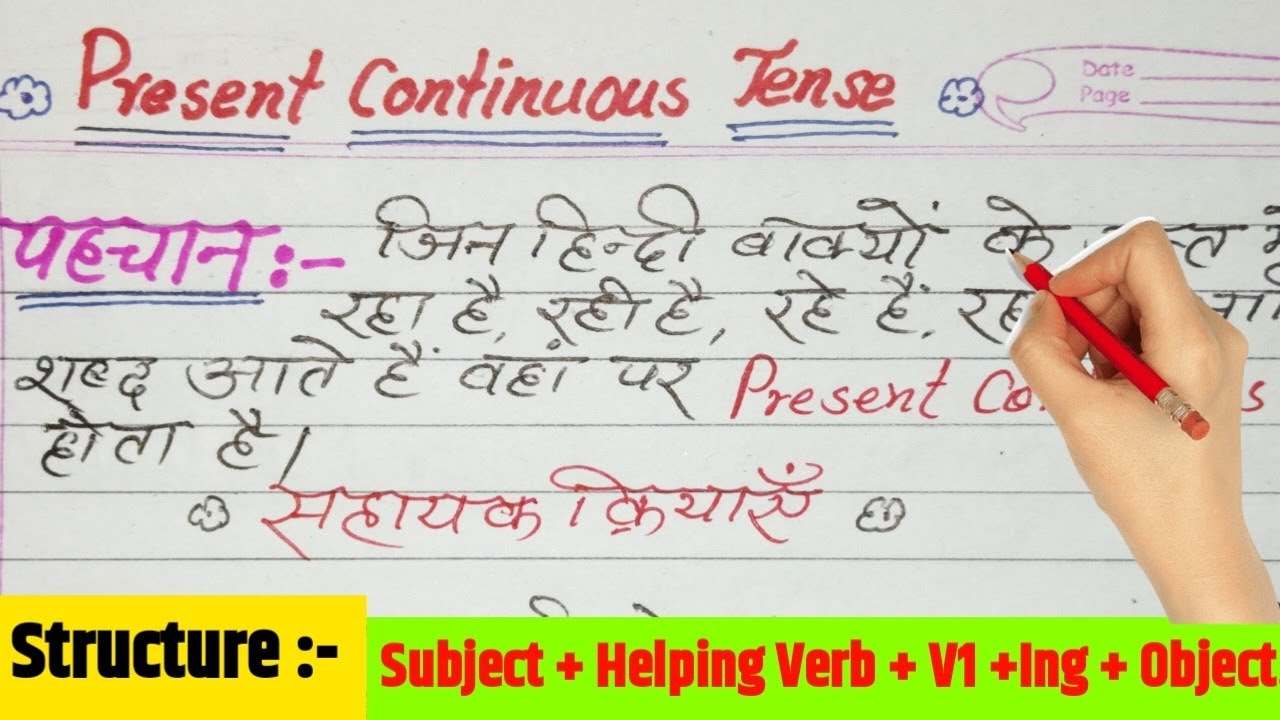 Present Continuous Tense
Date
Page
पहचान :- जिन हिन्दी वाक्यों के
रहा है, रही है, रहे हैं,
शब्द आते हैं वहां पर Present
होता है।
सहायक क्रियाएँ
Structure :-
Subject + Helping Verb + V1 +Ing + Object